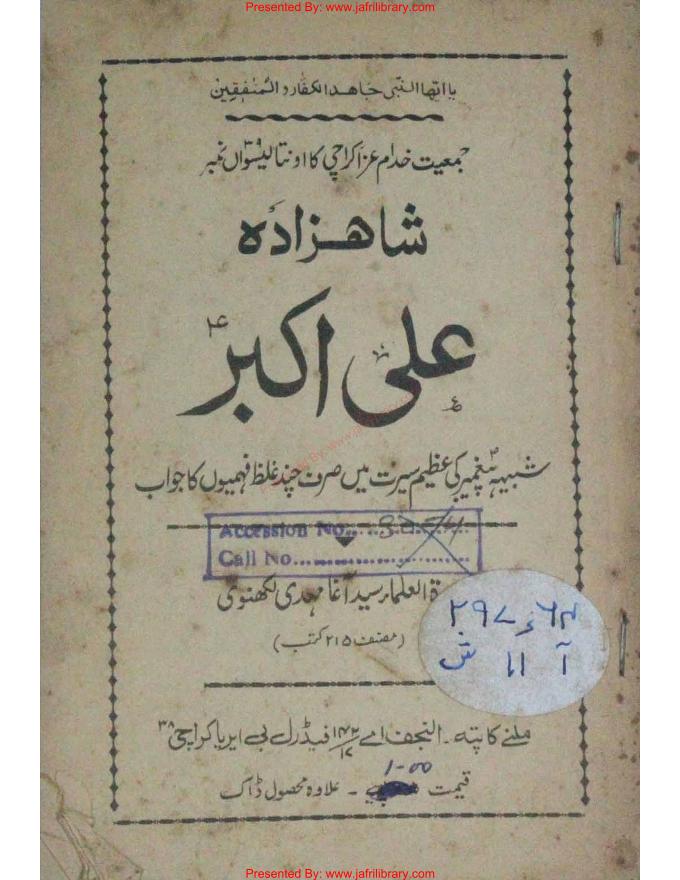 Presented By: www.jafrilibrary.com
یا ایھا النبی جاھد الکفار و المنٰفقین
جمعیت خدام عزا کراچی کا اونتالیسواں ۳۹ نمبر
شاھزادہٴ
علی اکبر ؑ
شبیہہ پیغمبر کی عظیم سیرت میں صرف چند غلظ فہمیوں کا جواب
Accession No.
Call No.
ۃ العلماء سید آغا مہدی لکھنوی
(مصنف ۲۱۵ کتب)
۲۹۷ء۶۴
آ ۱۱۱ ش
ملنے کا پتہ۔ النجف اے ۱۴۲/۱۲ فیڈرل بی ایریا کراچی ۳۸
1-00
قیمت - علاوہ محصول ڈاک
Presented By: www.jafrilibrary.com